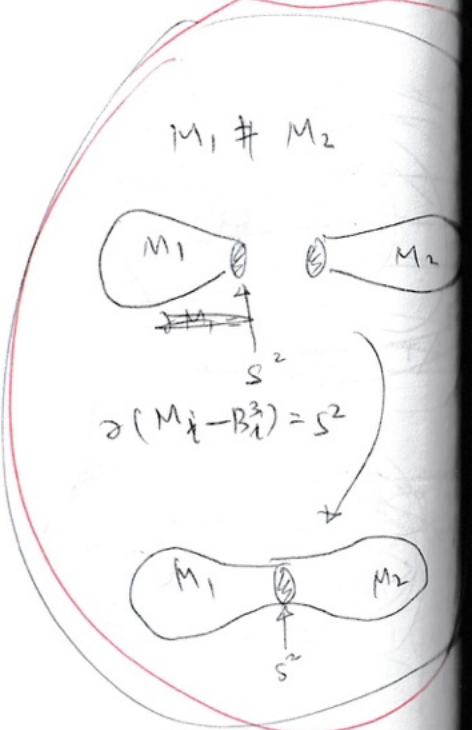 M₁ # M₂
M₁ M₂
S²
∂(Mᵢ−B³ᵢ)=S²
M₁ M₂
S²